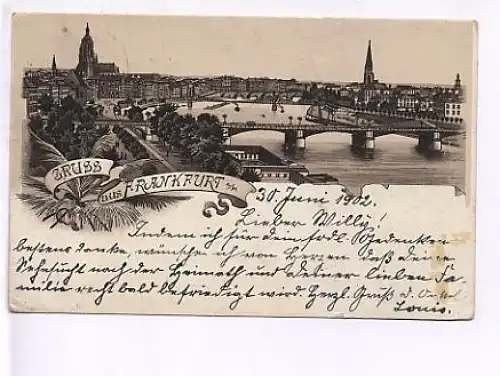 GRUSS
aus FRANKFURT a/M
30. Juni 1902.
Lieber Willy!
Indem ich für dem frdl. Gedenken
bestens danke, wünsche ich von Herzen daß deine
Sehnsucht nach der Heimath und Deiner lieben Fa-
milie recht bald befriedigt wird. Herzl. Gruß d. Onkel
Louis.